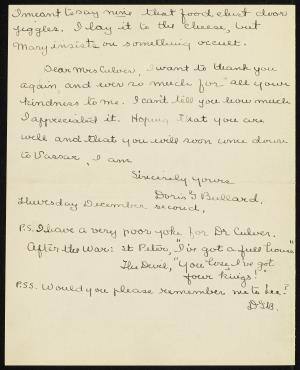 I meant to say nine that food chest door
jiggles. I lay it to the cheese, but
Mary insists on something occult.
Dear Mrs Culver, I want to thank you
again, and ever so much for all your
kindness to me. I can't tell you how much
I appreciated it. Hoping that you are
well and that you will soon come down
to Vassar, I am
Sincerely yours
Doris G Bullard.
Thursday December second,
P.S. I have a very poor yoke for Dr Culver.
After the War: St Peter, "I've got a full house"
The Devil, "You lose, I've got
four kings!
P.SS. Would you please remember me to Lee?
DGB.